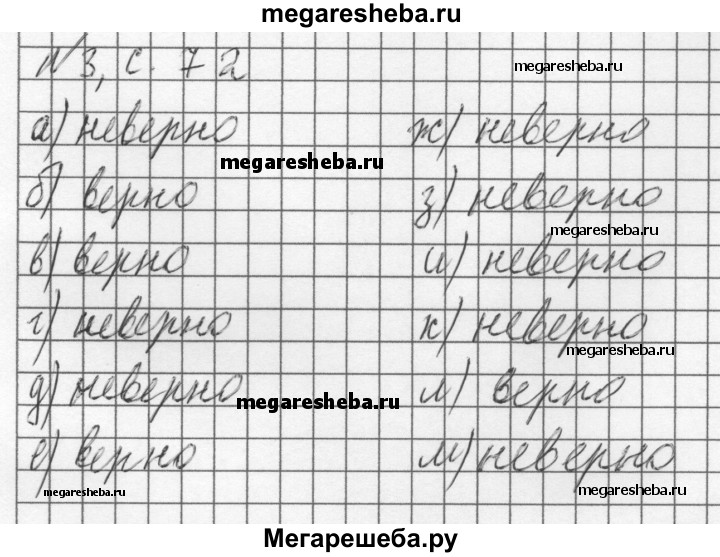 megaresheba.ru
№3, с. 72
megaresheba.ru
а) неверно
ж) неверно
megaresheba.ru
б) верно
з) неверно
megaresheba.ru
в) верно
и) неверно
г) неверно
к) неверно
megaresheba.ru
д) неверно
л) верно
megaresheba.ru
е) верно
м) неверно
megaresheba.ru
megaresheba.ru
Мегарешеба.ру